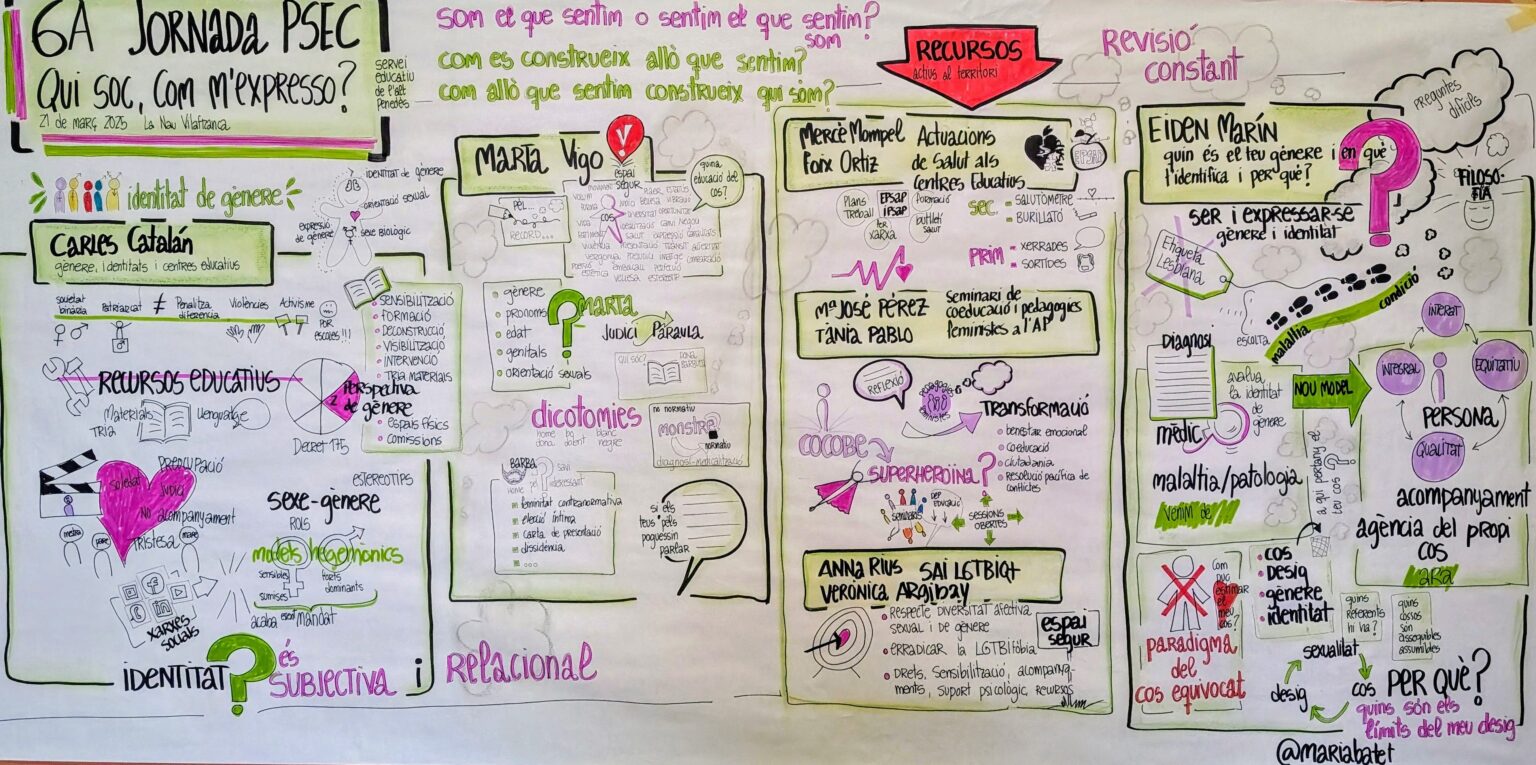 6A JORNADA PSEC
QUI SOC, COM M'EXPRESSO?
21 de març 2025 La Nau Vilafranca
servei
educatiu
de l'alt
Penedès
SOM el que sentim o sentim el que sentim?
SOM
com es construeix allò que sentim?
com allò que sentim construeix qui som?
identitat de gènere
IDENTITAT de gènere
orientació sexual
expressió
de gènere
sexe biològic
CARLES CATALÁN
gènere, identitats i centres educatius
societat
binària
Patriarcat
≠
Penalitza
diferència
Violències
Activisme
POR
escoles!!!
RECURSOS EDUCATIUS
Materials
TRIA
Llenguatge
2
PERSPECTIVA
de gènere
Decret 175
SENSIBILITZACIÓ
FORMACIÓ
DECONSTRUCCIÓ
VISIBILITZACIÓ
INTERVENCIÓ
TRIA MATERIALS
espais físics
comissions
PREOCUPACIÓ
Soledat
JUDICI
NO acompanyament
TRISTESA
XARXES
SOCIALS
estereotips
sexe-gènere
ROLS
models hegemònics
sensibles
sumises
forts
dominants
acaba essent mandat
IDENTITAT
és
SUBJECTIVA i RELACIONAL
MARTA VIGO
espai
segur
quina
educació del
cos?
PÈL...
RECORD...
COS
gènere
pronoms
edat
genitals
orientació sexuals
MARTA
JUDICI PARAULA
QUI SOC?
DONA
BARBUDA
dicotomies
home
dona
blanc
negre
no normatiu
monstre
normatiu
diagnosi-medicalització
BARBA
Home
pèl
savi
interessant
feminitat contranormativa
elecció íntima
carta de presentació
dissidència
...
si els
teus pèls
poguessin
parlar
RECURSOS
actius al territori
Mercè Mompel
Foix Ortiz
Actuacions
de Salut als
Centres Educatius
Plans
Treball
EPSAP
IPSAP
formació
FER
XARXA
butlletí
salut
SEC
SALUTÒMETRE
BURILLATÓ
PRIM
XERRADES
SORTIDES
Mª JOSÉ PÉREZ
TÀNIA PABLO
Seminari de
coeducació i pedagogies
feministes a l'AP
REFLEXIÓ
pedagogies
feministes
TRANSFORMACIÓ
benestar emocional
coeducació
ciutadania
resolució pacífica de
conflictes
COCOBE
SUPERHEROÏNA?
SEMINARIS
DEP
EDUCACIÓ
SESSIONS
OBERTES
ANNA RIUS
VERÒNICA ARGIBAY
SAI LGTBIQ+
respecte diversitat afectiva
sexual i de gènere
erradicar la LGTBIfòbia
Drets, Sensibilització, acompanya-
ments, suport psicològic, recursos
espai
segur
REVISIÓ
constant
Preguntes
difícils
FILOSO-
FIA
EIDEN MARÍN
quin és el teu gènere i en què
t'identifica i per què?
SER i EXPRESSAR-SE
gènere i identitat
Etiqueta
Lesbiana
escolta
malaltia
condició
Diagnosi
avalua
la identitat
de
gènere
mèdic
malaltia/patologia
venim de
NOU MODEL
a qui pertany el
teu cos?
INTEGRAT
INTEGRAL
EQUITATIU
PERSONA
QUALITAT
acompanyament
agència del propi
cos
ARA
Com
puc
estimar
el
meu
cos?
paradigma
del
cos equivocat
cos
desig
gènere
identitat
quins
referents
hi ha?
quins
cossos
són
assequibles
assumibles
sexualitat
desig
cos
PER QUÈ?
quins són els
límits del meu desig
@mariabatet